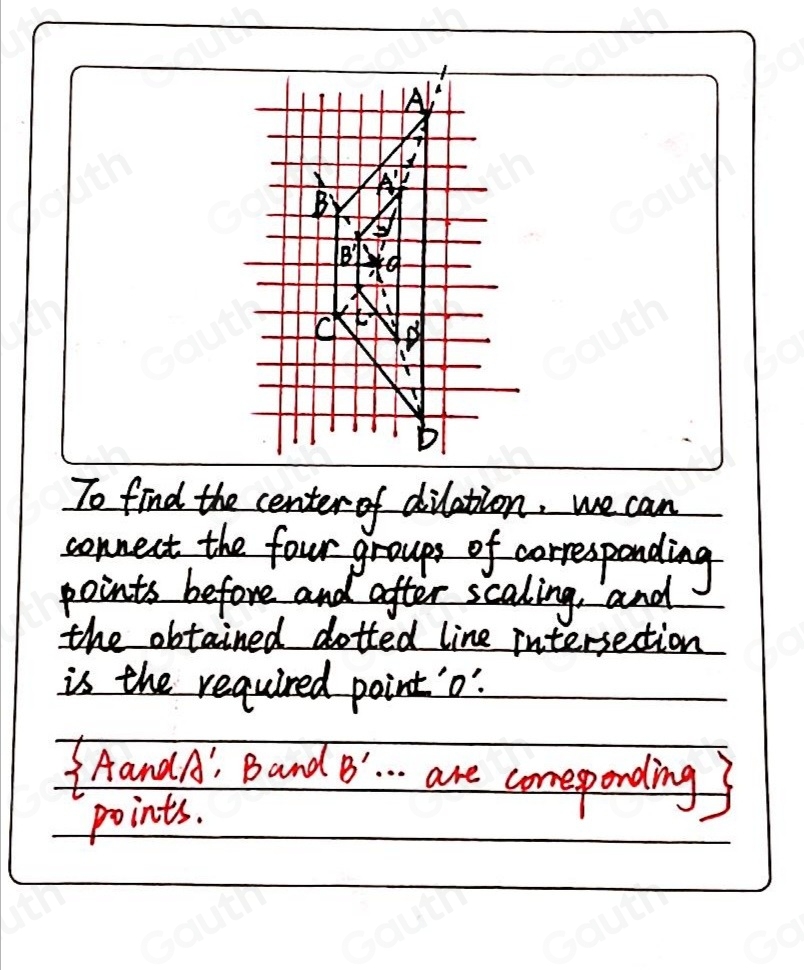 A
B
A'
B'
O
C
C'
D'
D
To find the center of dilation, we can
connect the four groups of corresponding
points before and after scaling, and
the obtained dotted line intersection
is the required point 'O'.
{A and A', B and B'... are correponding}
points.
Gauth